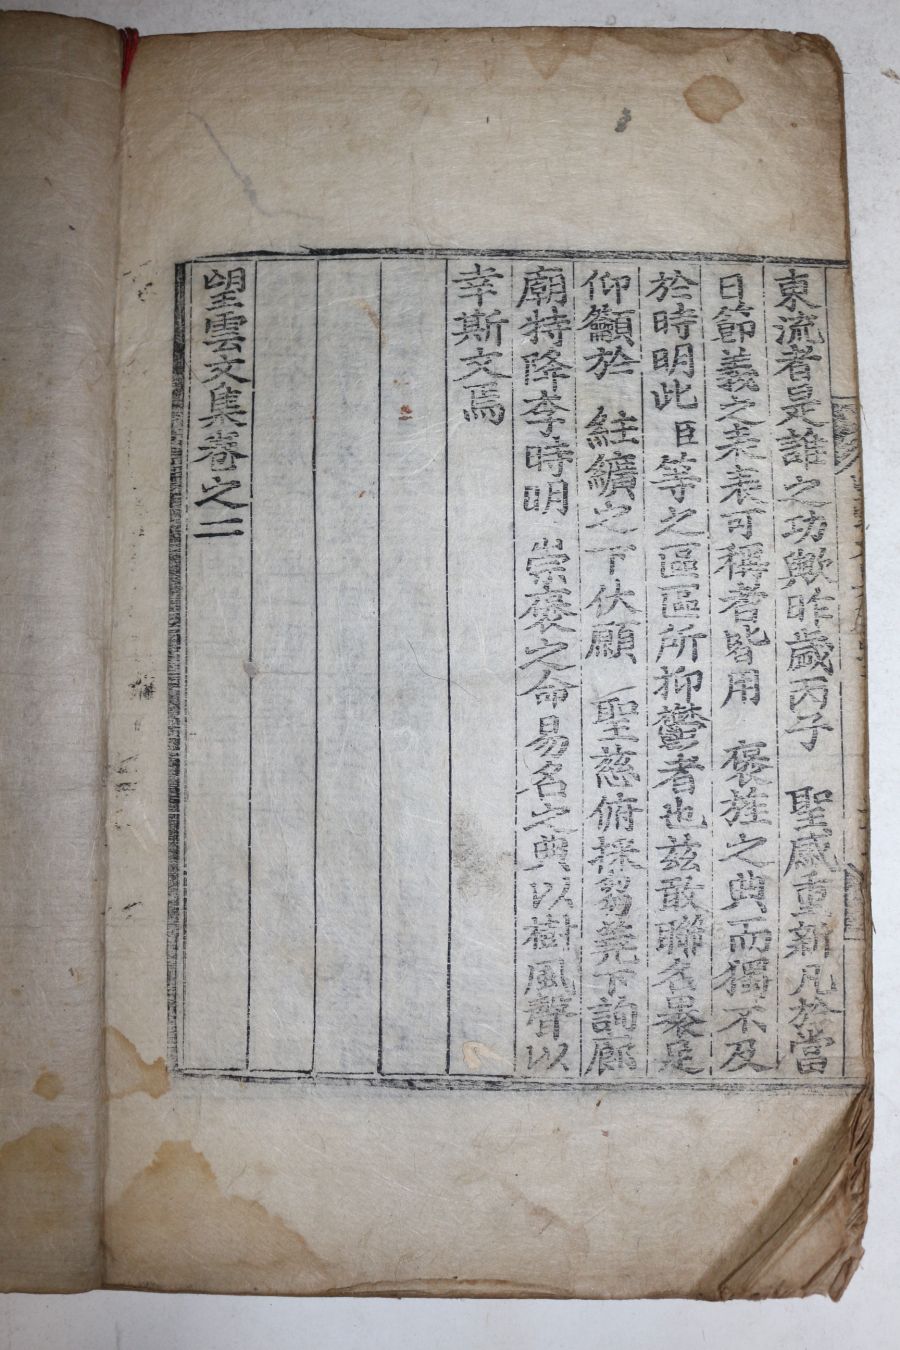 東流者是誰之功歟昨歲丙子　聖感重新凡於當
日節義之表表可稱者皆用　褒旌之典而獨不及
於時明此臣等之區區所抑鬱者也玆敢聯名裹足
仰籲於　黈纊之下伏願　聖慈俯採芻蕘下詢廊
廟特降李時明　崇褒之命易名之典以樹風聲以
幸斯文焉
望雲文集卷之二